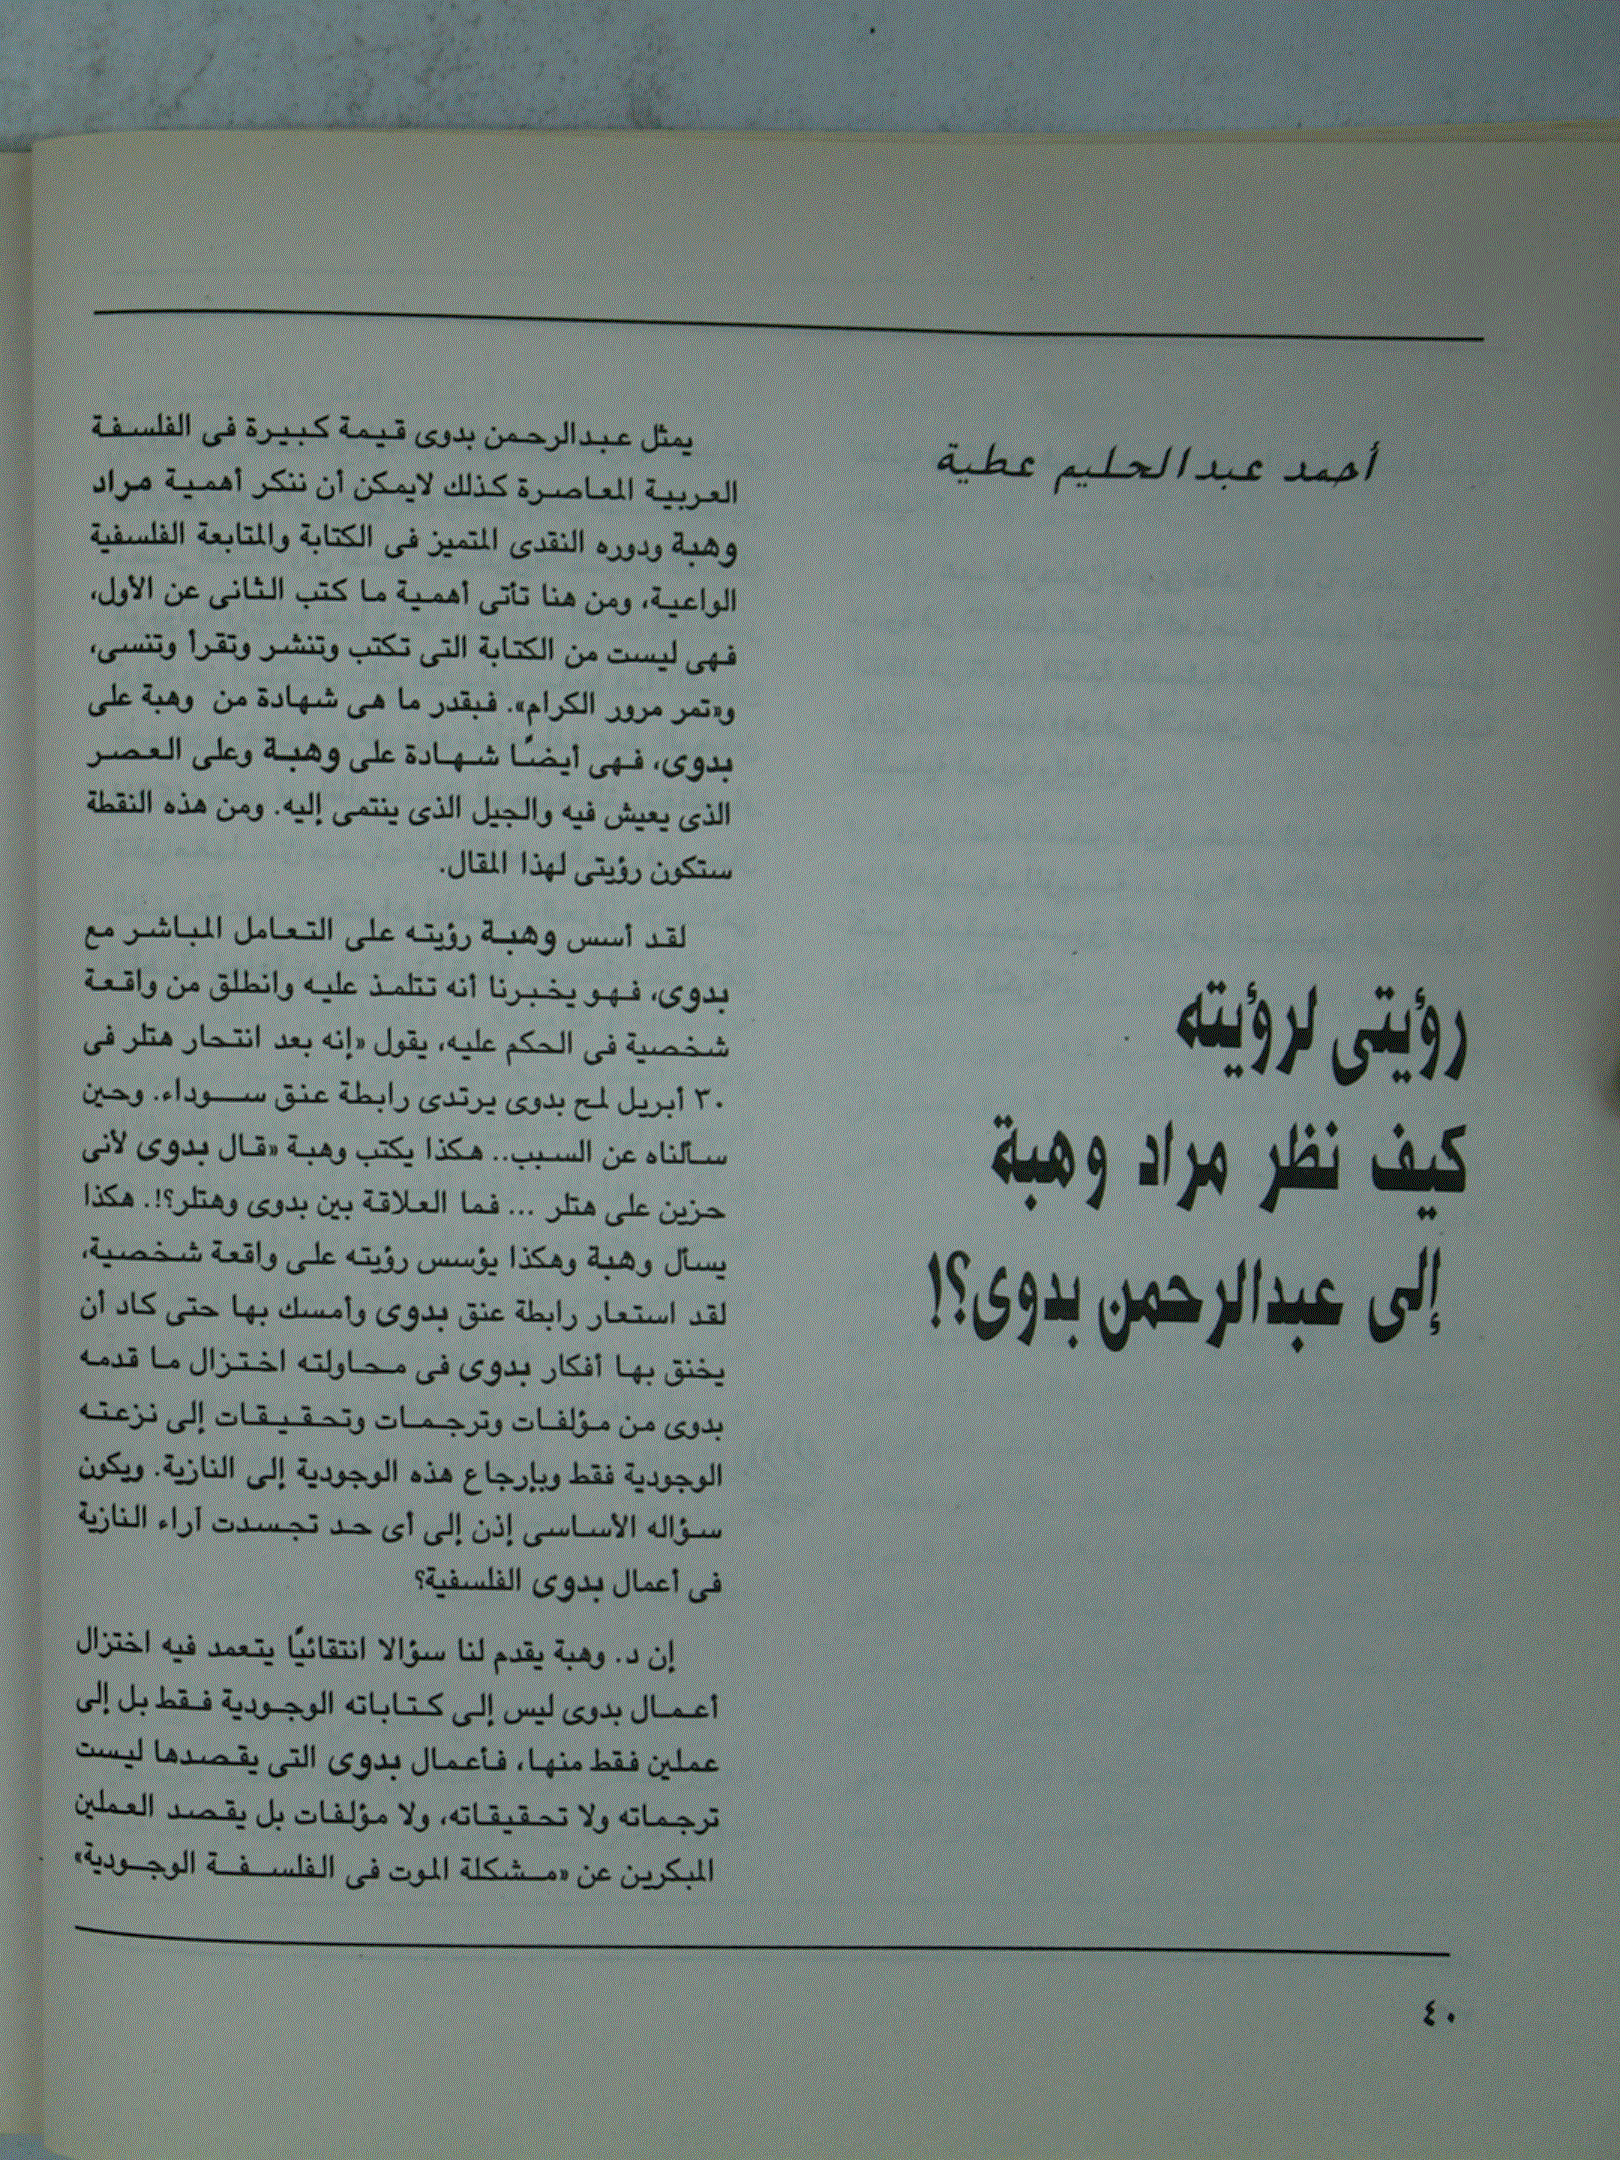 أحمد عبدالحليم عطية
رؤيتى لرؤيته
كيف نظر مراد وهبة
إلى عبدالرحمن بدوى؟!
يمثل عبدالرحمن بدوى قيمة كبيرة فى الفلسفة
العربية المعاصرة كذلك لايمكن أن ننكر أهمية مراد
وهبة ودوره النقدى المتميز فى الكتابة والمتابعة الفلسفية
الواعية، ومن هنا تأتى أهمية ما كتب الثانى عن الأول،
فهى ليست من الكتابة التى تكتب وتنشر وتقرأ وتنسى،
و«تمر مرور الكرام». فبقدر ما هى شهادة من وهبة على
بدوى، فهى أيضًا شهادة على وهبة وعلى العصر
الذى يعيش فيه والجيل الذى ينتمى إليه. ومن هذه النقطة
ستكون رؤيتى لهذا المقال.
لقد أسس وهبة رؤيته على التعامل المباشر مع
بدوى، فهو يخبرنا أنه تتلمذ عليه وانطلق من واقعة
شخصية فى الحكم عليه، يقول «إنه بعد انتحار هتلر فى
٣٠ أبريل لمح بدوى يرتدى رابطة عنق سوداء. وحين
سألناه عن السبب.. هكذا يكتب وهبة «قال بدوى لأنى
حزين على هتلر ... فما العلاقة بين بدوى وهتلر؟!. هكذا
يسأل وهبة وهكذا يؤسس رؤيته على واقعة شخصية،
لقد استعار رابطة عنق بدوى وأمسك بها حتى كاد أن
يخنق بها أفكار بدوى فى محاولته اختزال ما قدمه
بدوى من مؤلفات وترجمات وتحقيقات إلى نزعته
الوجودية فقط وبإرجاع هذه الوجودية إلى النازية. ويكون
سؤاله الأساسى إذن إلى أى حد تجسدت آراء النازية
فى أعمال بدوى الفلسفية؟
إن د. وهبة يقدم لنا سؤالا انتقائيًا يتعمد فيه اختزال
أعمال بدوى ليس إلى كتاباته الوجودية فقط بل إلى
عملين فقط منها، فأعمال بدوى التى يقصدها ليست
ترجماته ولا تحقيقاته، ولا مؤلفات بل يقصد العملين
المبكرين عن «مشكلة الموت فى الفلسفة الوجودية»
٤٠